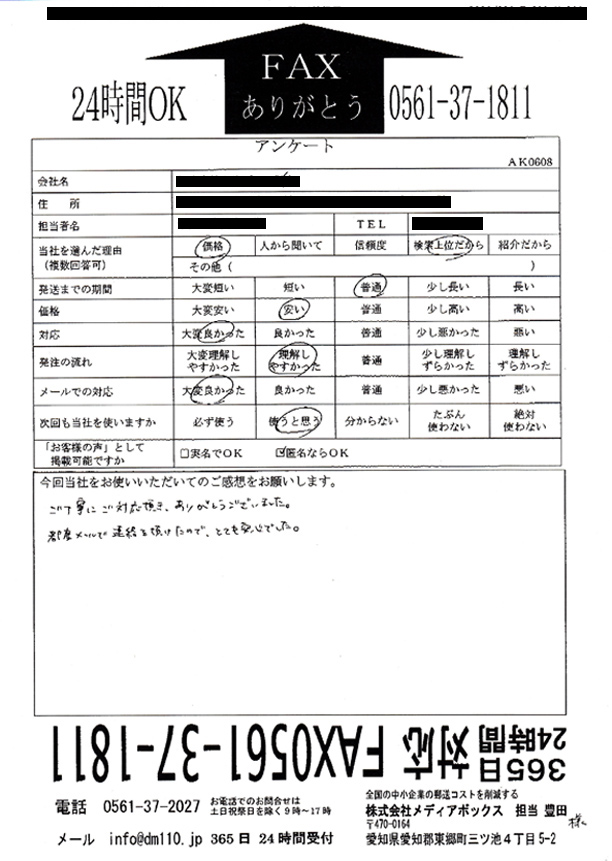 24時間OK
FAX
ありがとう
0561-37-1811
アンケート
AK0608
会社名
住　所
担当者名　TEL
当社を選んだ理由
(複数回答可)
価格　人から聞いて　信頼度　検索上位だから　紹介だから
その他 (　)
発送までの期間　大変短い　短い　普通　少し長い　長い
価格　大変安い　安い　普通　少し高い　高い
対応　大変良かった　良かった　普通　少し悪かった　悪い
発注の流れ　大変理解しやすかった　理解しやすかった　普通　少し理解しずらかった　理解しずらかった
メールでの対応　大変良かった　良かった　普通　少し悪かった　悪い
次回も当社を使いますか　必ず使う　使うと思う　分からない　たぶん使わない　絶対使わない
「お客様の声」として
掲載可能ですか
□実名でOK　☑匿名ならOK
今回当社をお使いいただいてのご感想をお願いします。
ご丁寧にご対応頂き、ありがとうございました。
都度メールで連絡を頂けたので、とても安心でした。
365日
24時間
対応 FAX0561-37-1811
電話　0561-37-2027
お電話でのお問合せは
土日祝祭日を除く9時～17時
メール　info@dm110.jp 365日 24時間受付
全国の中小企業の郵送コストを削減する
株式会社メディアボックス　担当 豊田 様
〒470-0164
愛知県愛知郡東郷町三ツ池4丁目5-2